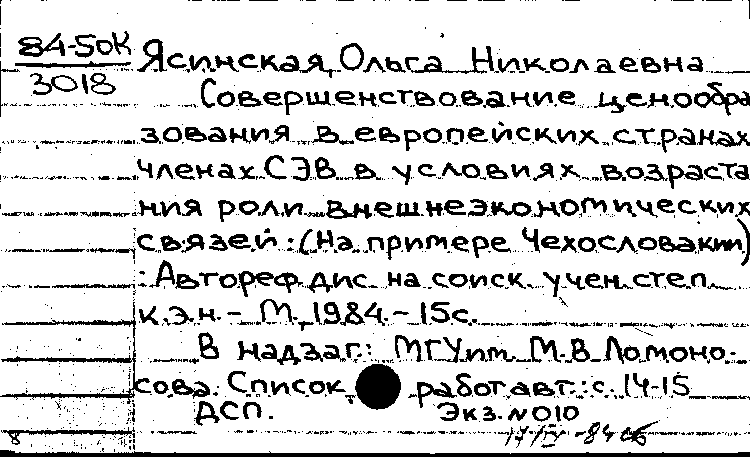 84-5ОК
3018
Ясинская, Ольга Николаевна
Совершенствование ценообра
зования в европейских странах
членах СЭВ в условиях возраста
ния роли внешнеэкономических
связей: (На примере Чехословакии)
: Автореф. дис. на соиск. учен. степ.
к.э.н. – М., 1984. – 15с.
В надзаг.: МГУ им. М.В. Ломоно-
сова. Список работ авт.: с. 14-15
ДСП. Экз. №010
8